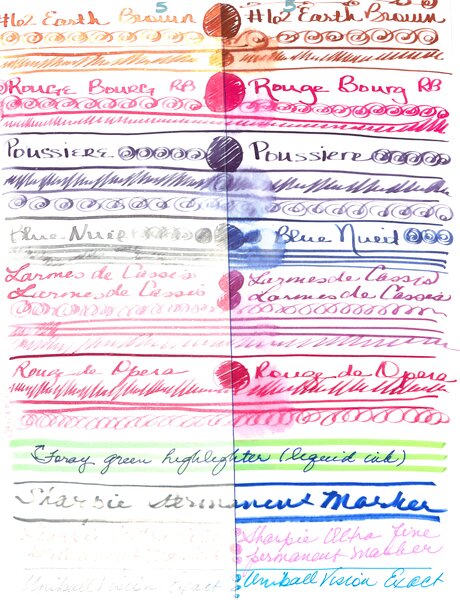 5 5
#162 Earth Brown #162 Earth Brown
Rouge Bourg RB Rouge Bourg RB
Poussiere Poussiere
Blue Nuit Blue Nuit
Larmes de Cassis Larmes de Cassis
Larmes de Cassis Larmes de Cassis
Rouge de Opera Rouge de Opera
Foray green highlighter (liquid ink)
Sharpie Permanent Marker
Sharpie Ultra Fine
permanent marker
Uniball Vision Exact Uniball Vision Exact